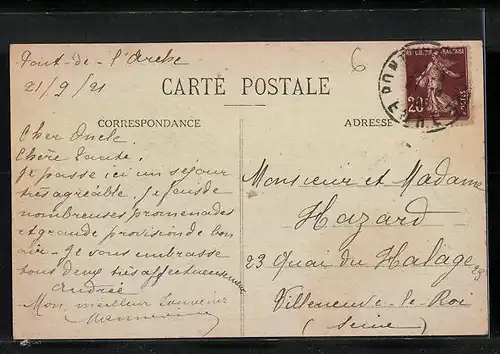 Pont-de-l'Arche
21/9/21
6
CARTE POSTALE
CORRESPONDANCE
ADRESSE
PONT
EURE
20c
POSTES
Cher Oncle
Chère Tante,
Je passe ici un séjour
très agréable. Je fais de
nombreuses promenades
et grande provision de bon
air. Je vous embrasse
tous deux très affectueusement
Andrée
Mon meilleur Souvenir
Monsieur et Madame
Hazard
23 Quai du Halage 23
Villeneuve-le-Roi
(Seine)